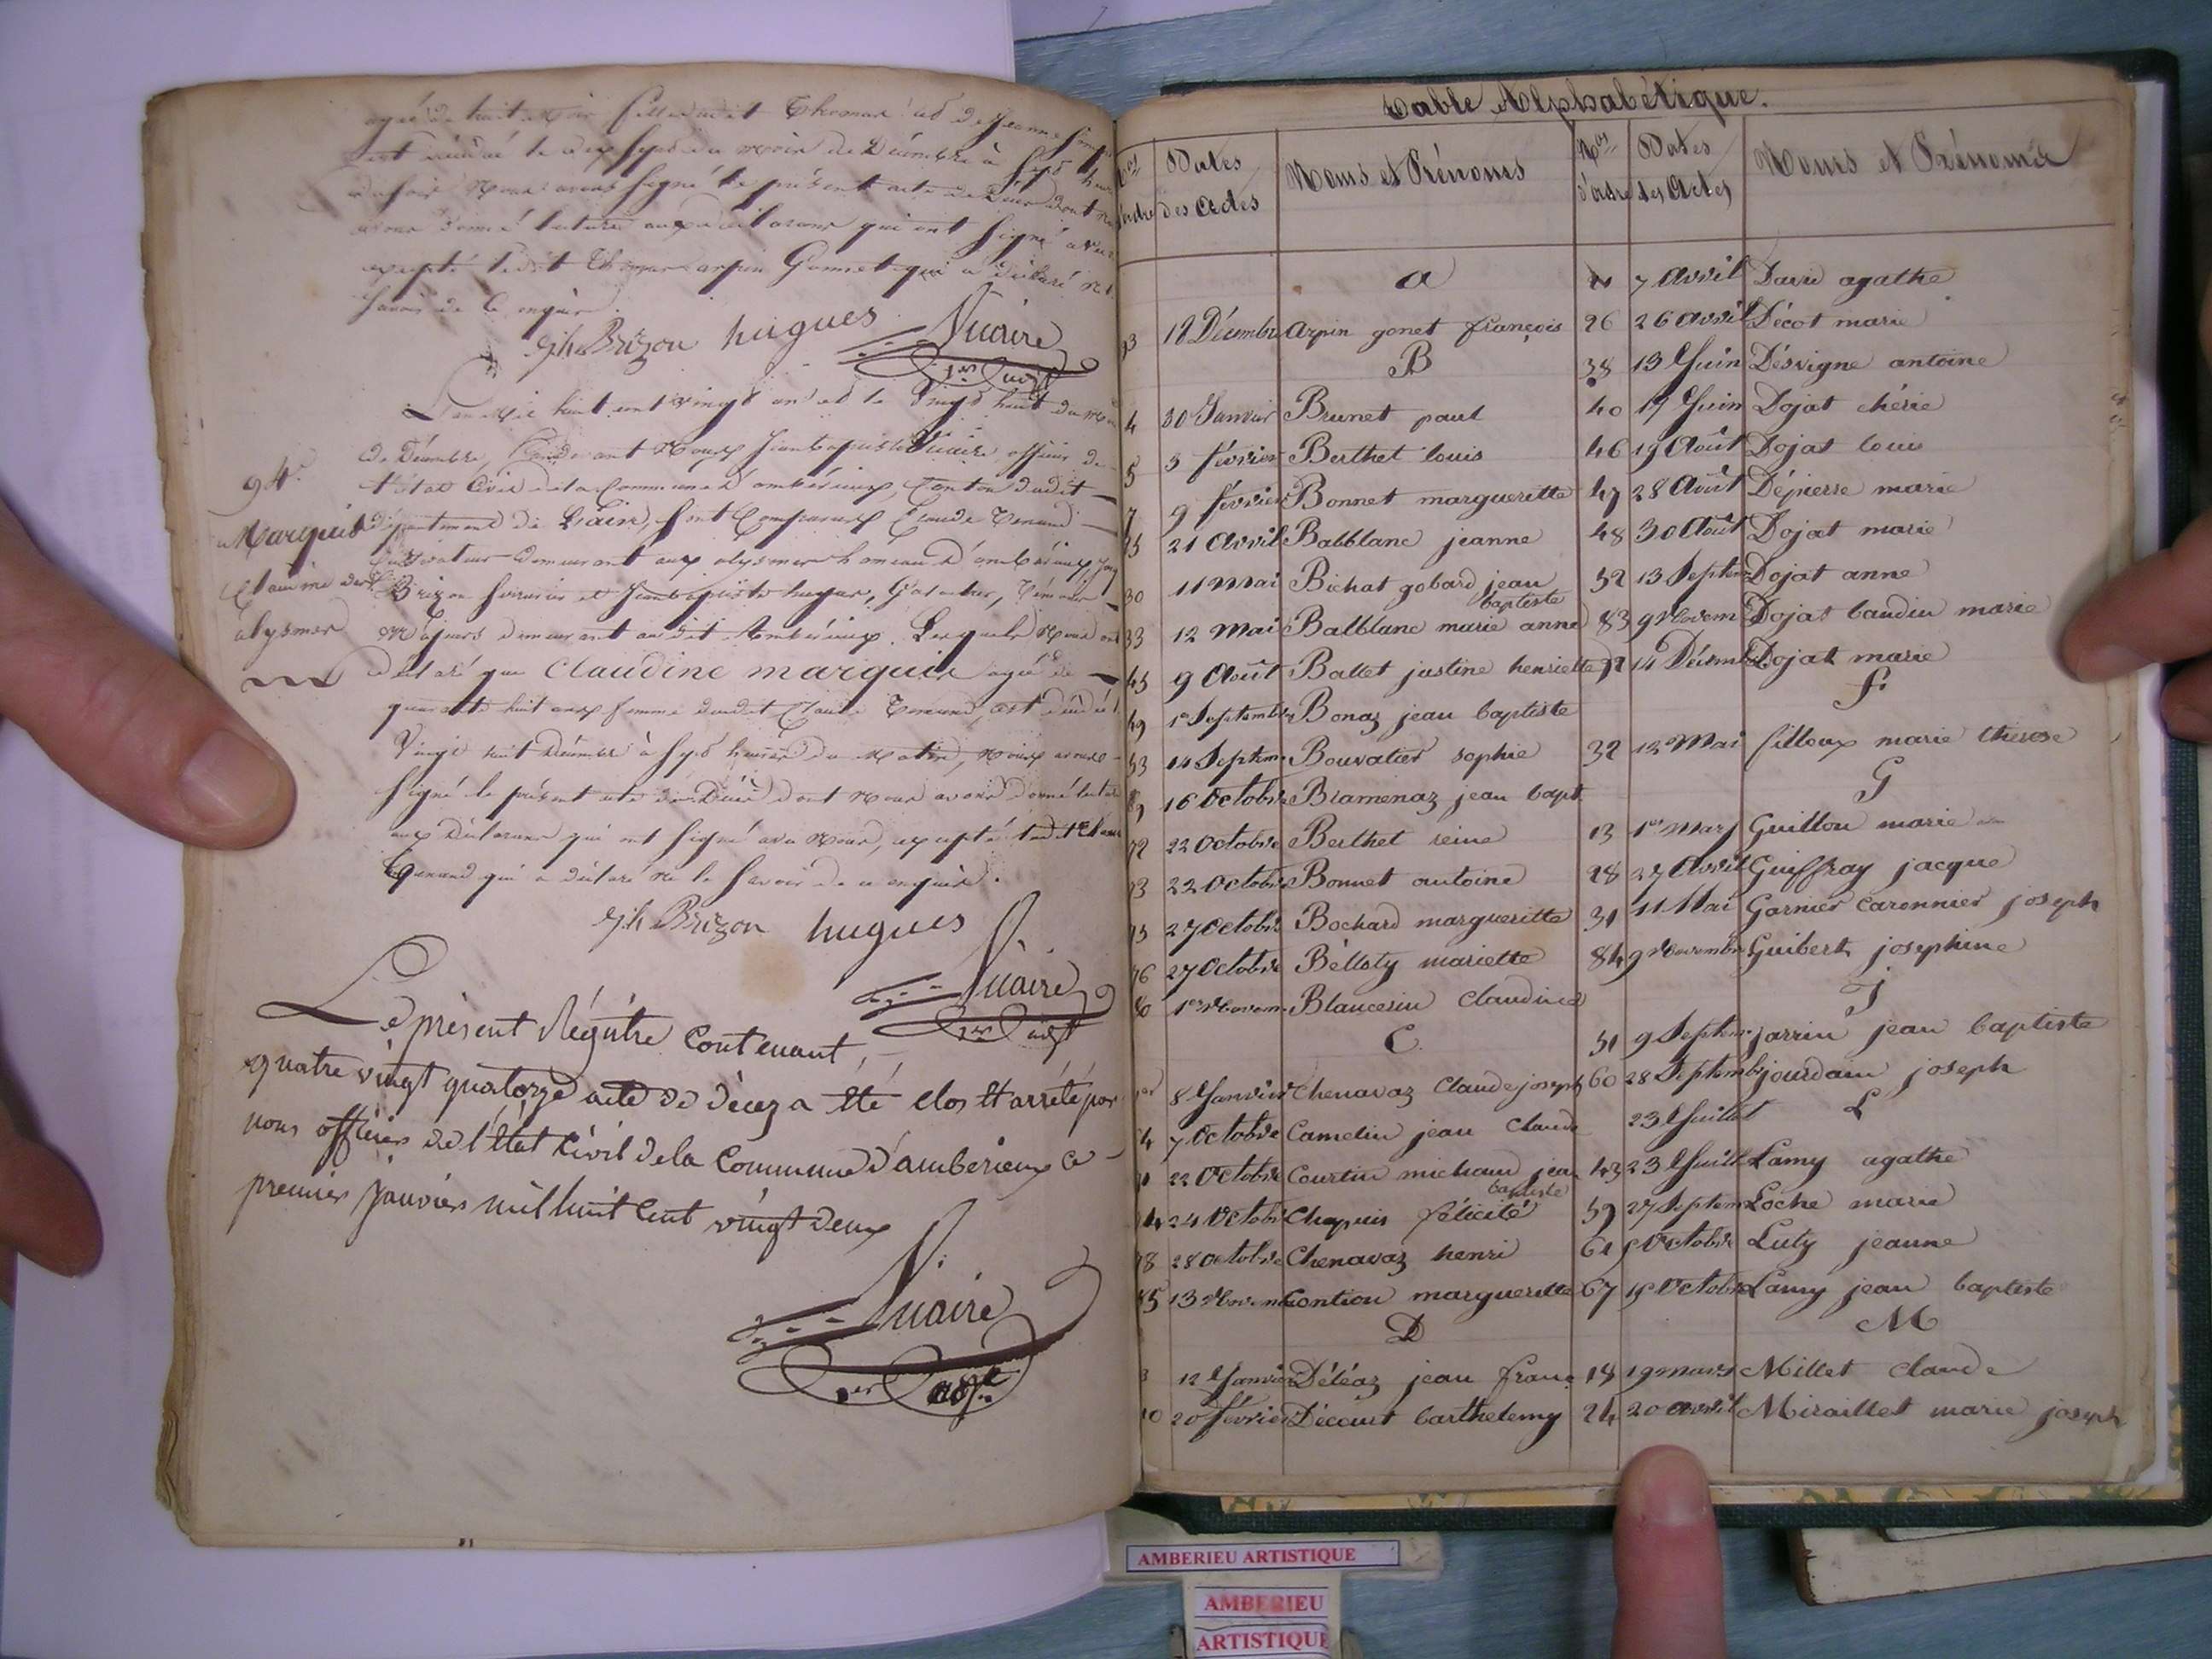 agée de huit mois fille dudit Thomas et de Jeanne
est décédé le dix sept du mois de Décembre à sept heures
du soir Nous avons signé le présent acte de Décès dont nous
avons donné lecture aux déclarans qui ont signé avec
excepté ledit Thomas arpin Gonnet qui a déclaré ne
savoir de ce enquis.
Brizon hugues Vuaire
1er adjt
L'an mil huit cent vingt un et le vingt huit du mois
de Décembre, Pardevant Nous Jean baptiste Vuaire officier de
l'état Civil de la Commune d'ambérieux, Canton dudit
département de L'ain, sont Comparus Claude Tenand
Cultivateur demeurant aux alysmes hameau d'ambérieux,
Brizon serrurier et Jean baptiste hugues, Témoins
Majeurs demeurant audit Ambérieux. Lesquels Nous ont
déclaré que Claudine marquis agée de
quarante huit ans femme dudit Claude Tenand, est décédée
Vingt huit Décembre à sept heures du Matin, Nous avons
signé le présent acte de Décès dont Nous avons donné lecture
aux Déclarans qui ont signé avec Nous, excepté ledit Claude
Tenand qui a déclaré ne le savoir de ce enquis.
94.
Marquis
Claudine des
alysmes
Brizon hugues
Vuaire
1er adjt
Le présent Régistre Contenant
quatre vingt quatorze acte de décez a été clos et arrêté par
nous officier de l'état Civil de la Commune d'amberieux ce
premier Janvier mil huit Cent vingt deux
Vuaire
1er adjt
Table Alphabétique.
Nos d'ordre Dates des actes Noms et Prénoms
a
18 Décembre Arpin gonet françois
B
4 30 Janvier Brunet paul
5 5 février Berthet louis
7 9 février Bonnet margueritte
25 21 Avril Balblanc jeanne
30 11 Mai Bichat gobard jean baptiste
33 12 Mai Balblanc marie anne
45 9 Août Ballet justine henriette
49 1er Septembre Bonaz jean baptiste
53 14 Septem. Bouvatier sophie
16 Octobre Bramenaz jean bapt.
72 22 Octobre Berthet reine
73 22 Octobre Bonnet antoine
75 27 Octobre Bochard margueritte
76 27 Octobre Bellaty mariette
80 1er Novem. Blancerin Claudine
C.
1er 8 Janvier Chenavaz Claude joseph
7 Octobre Camelin jean Claude
22 Octobre Courtin michaud jean baptiste
74 24 Octobr Chapuis félicité
78 28 Octobre Chenavaz henri
85 13 Novem Contion margueritte
D
3 12 Janvier Déléaz jean franç
10 20 février Décourt barthelemy
Nos d'ordre Dates des Actes Noms et Prénoms
7 Avril David agathe
26 26 Avril Décot marie
38 13 Juin Désvigne antoine
40 17 Juin Dojat chérie
46 19 Août Dojat louis
47 28 Août Dépierre marie
48 30 Août Dojat marie
52 13 Septem Dojat anne
83 9 Novem Dojat baudin marie
14 Décemb Dojat marie
f
32 12 Mai filloux marie thérese
G
13 1er Mars Guillou marie
28 27 Avril Guiffray jacque
31 11 Mai Garnier Caronnier joseph
84 9 Novembre Guibert josephine
J
51 9 Septem. jarrin jean baptiste
60 28 Septembre jourdain joseph
23 Juillet L
43 23 Juill Lamy agathe
59 27 Septem Loche marie
61 Octobre Luty jeanne
67 19 Octobre Lamy jean baptiste
M
18 19 mars Millet claude
24 20 avril Miraillet marie joseph
AMBERIEU ARTISTIQUE
AMBERIEU
ARTISTIQUE